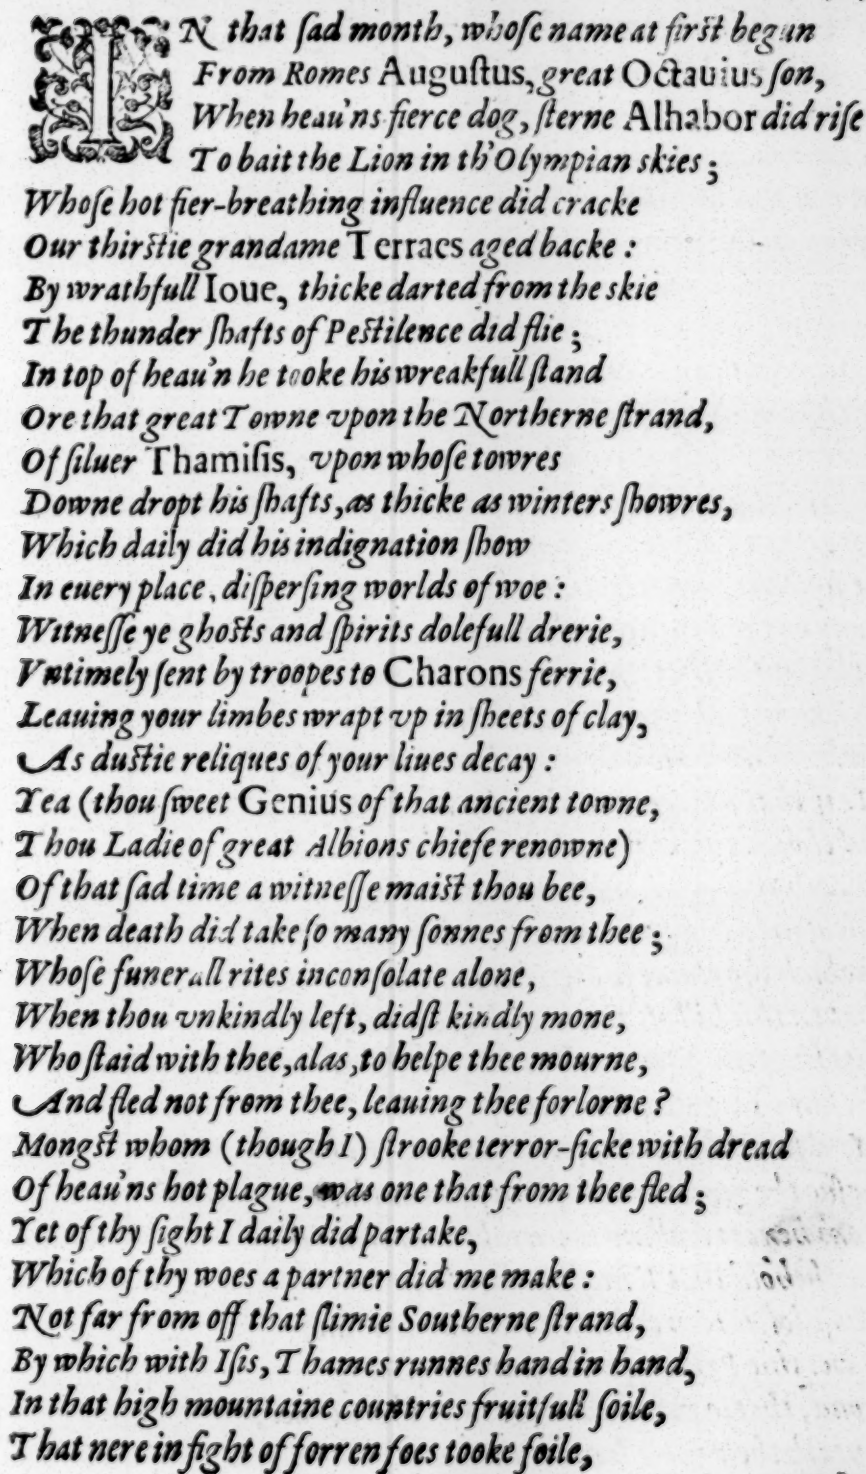 IN that ſad month, whoſe name at firſt begun
From Romes Auguſtus, great Octauius ſon,
When heau'ns fierce dog, ſterne Alhabor did riſe
To bait the Lion in th'Olympian skies;
Whoſe hot fier-breathing influence did cracke
Our thirſtie grandame Terraes aged backe:
By wrathfull Ioue, thicke darted from the skie
The thunder ſhafts of Peſtilence did flie;
In top of heau'n he tooke his wreakfull ſtand
Ore that great Towne vpon the Northerne ſtrand,
Of ſiluer Thamiſis, vpon whoſe towres
Downe dropt his ſhafts, as thicke as winters ſhowres,
Which daily did his indignation ſhow
In euery place, diſperſing worlds of woe:
Witneſſe ye ghoſts and ſpirits dolefull drerie,
Vntimely ſent by troopes to Charons ferrie,
Leauing your limbes wrapt vp in ſheets of clay,
As duſtie reliques of your liues decay:
Yea (thou ſweet Genius of that ancient towne,
Thou Ladie of great Albions chiefe renowne)
Of that ſad time a witneſſe maiſt thou bee,
When death did take ſo many ſonnes from thee;
Whoſe funerall rites inconſolate alone,
When thou vnkindly left, didſt kindly mone,
Who ſtaid with thee, alas, to helpe thee mourne,
And fled not from thee, leauing thee forlorne?
Mongſt whom (though I) ſtrooke terror-ſicke with dread
Of heau'ns hot plague, was one that from thee fled;
Yet of thy ſight I daily did partake,
Which of thy woes a partner did me make:
Not far from off that ſlimie Southerne ſtrand,
By which with Iſis, Thames runnes hand in hand,
In that high mountaine countries fruitfull ſoile,
That nere in fight of forren foes tooke foile,